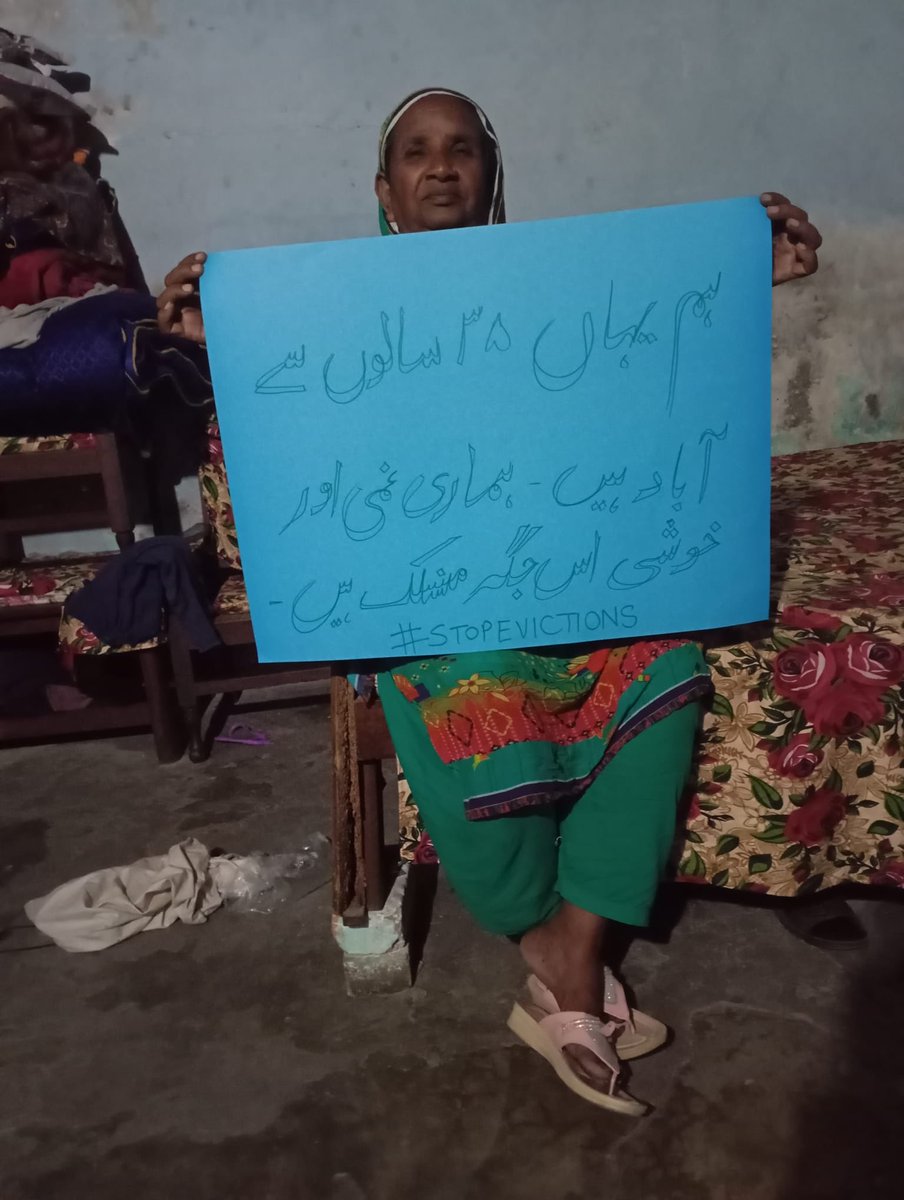 ہم یہاں ۳۸ سالوں سے
آباد ہیں - ہماری غمی اور
خوشی اس جگہ منسلک ہیں -
#STOPEVICTIONS